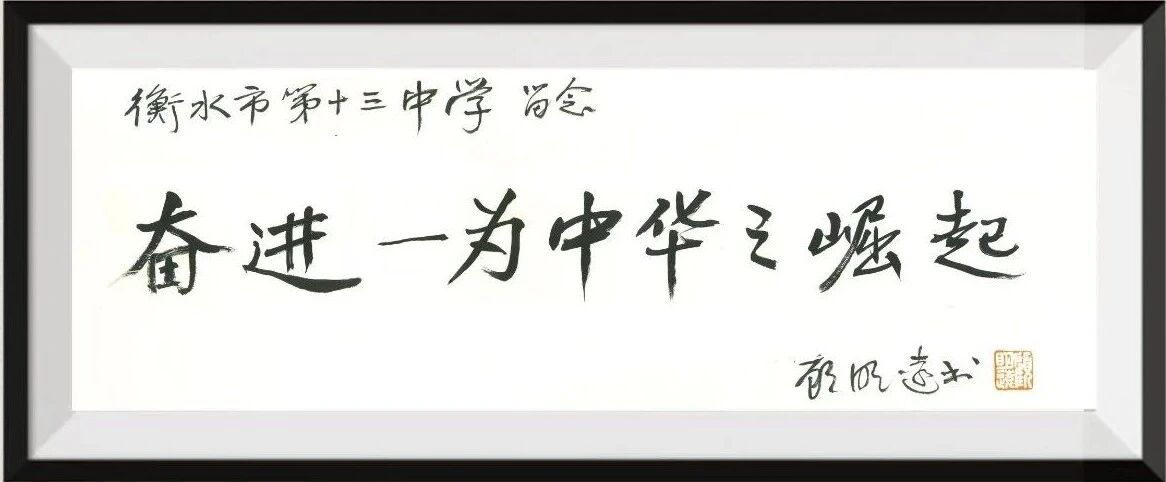 衡水市第十三中学 留念
奋进—为中华之崛起
顾明远书
顾明远